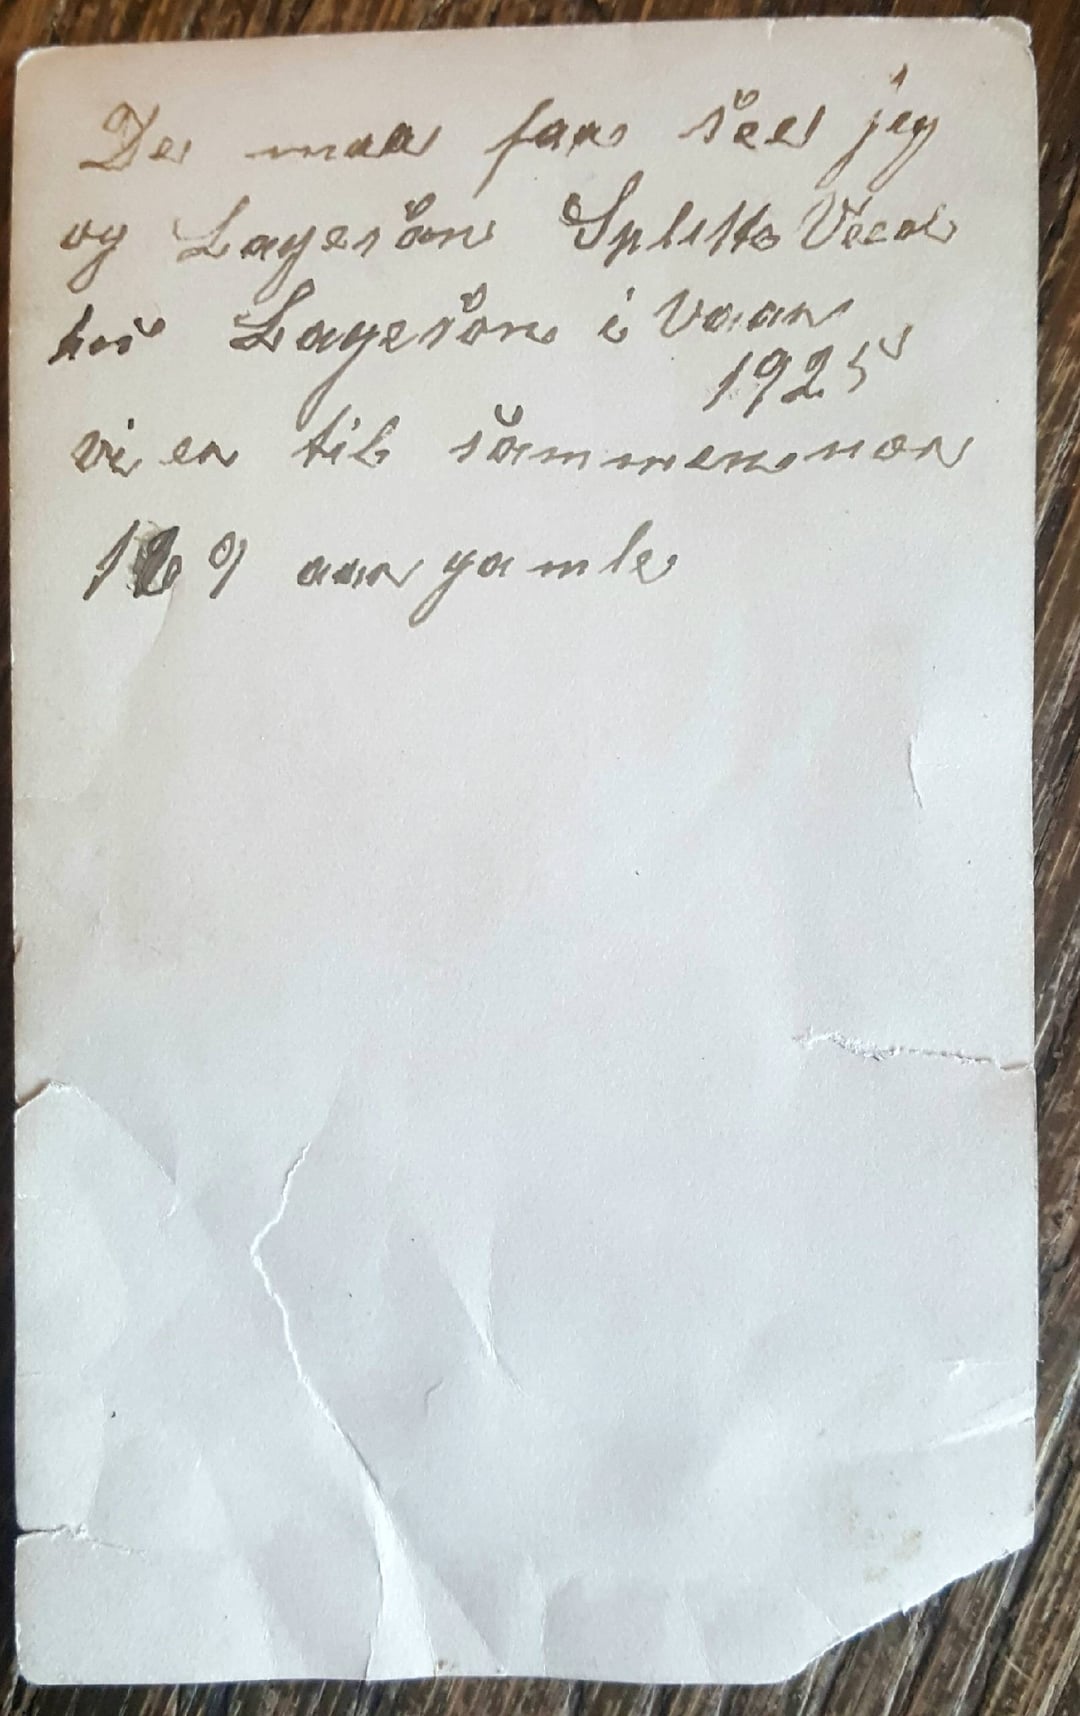 De maa faa see jeg
og Lageson Splitte Veed
hos Lageson i Vaar
1925
vi er til sammen nær
169 aar gamle